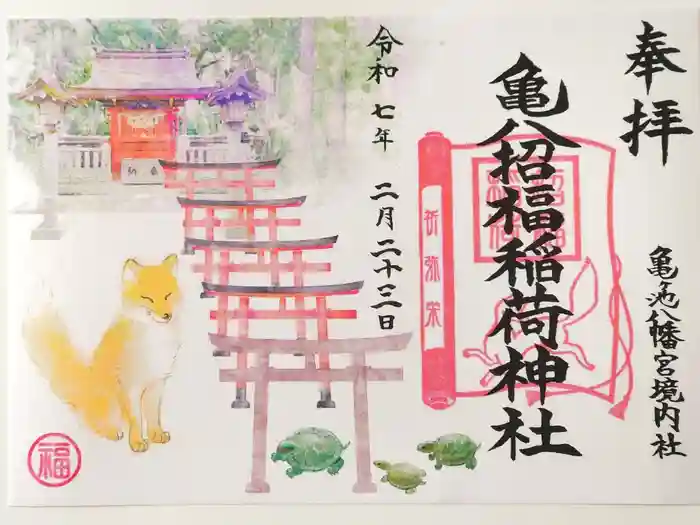 奉拝
亀ヶ池八幡宮境内社
亀八招福稲荷神社
令和七年 二月二十三日
祈弥栄
福